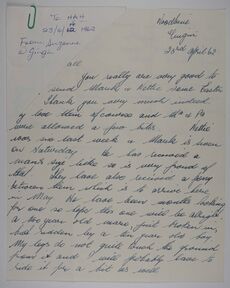 TO HAH
23/4/1962
From Suzanne
& Gingin
Woodbine
Gingin
23rd April 62
all
You really are very good to
send Mark & Kettie some Easter
Thank you very much indeed
love them of course and Mr & Mrs
were allowed a few bites. Kettie
was six last week & Mark is seven
on Saturday. He has received a
man's size bike & is very proud of
that. They have also received a pony
between them which is to arrive here
in May. We have been months looking
for one so hope this one will be alright.
a two year old mare, just broken in,
but ridden by a ten year old boy.
My legs do not quite touch the ground
from it and I will probably have to
ride it for a bit as well